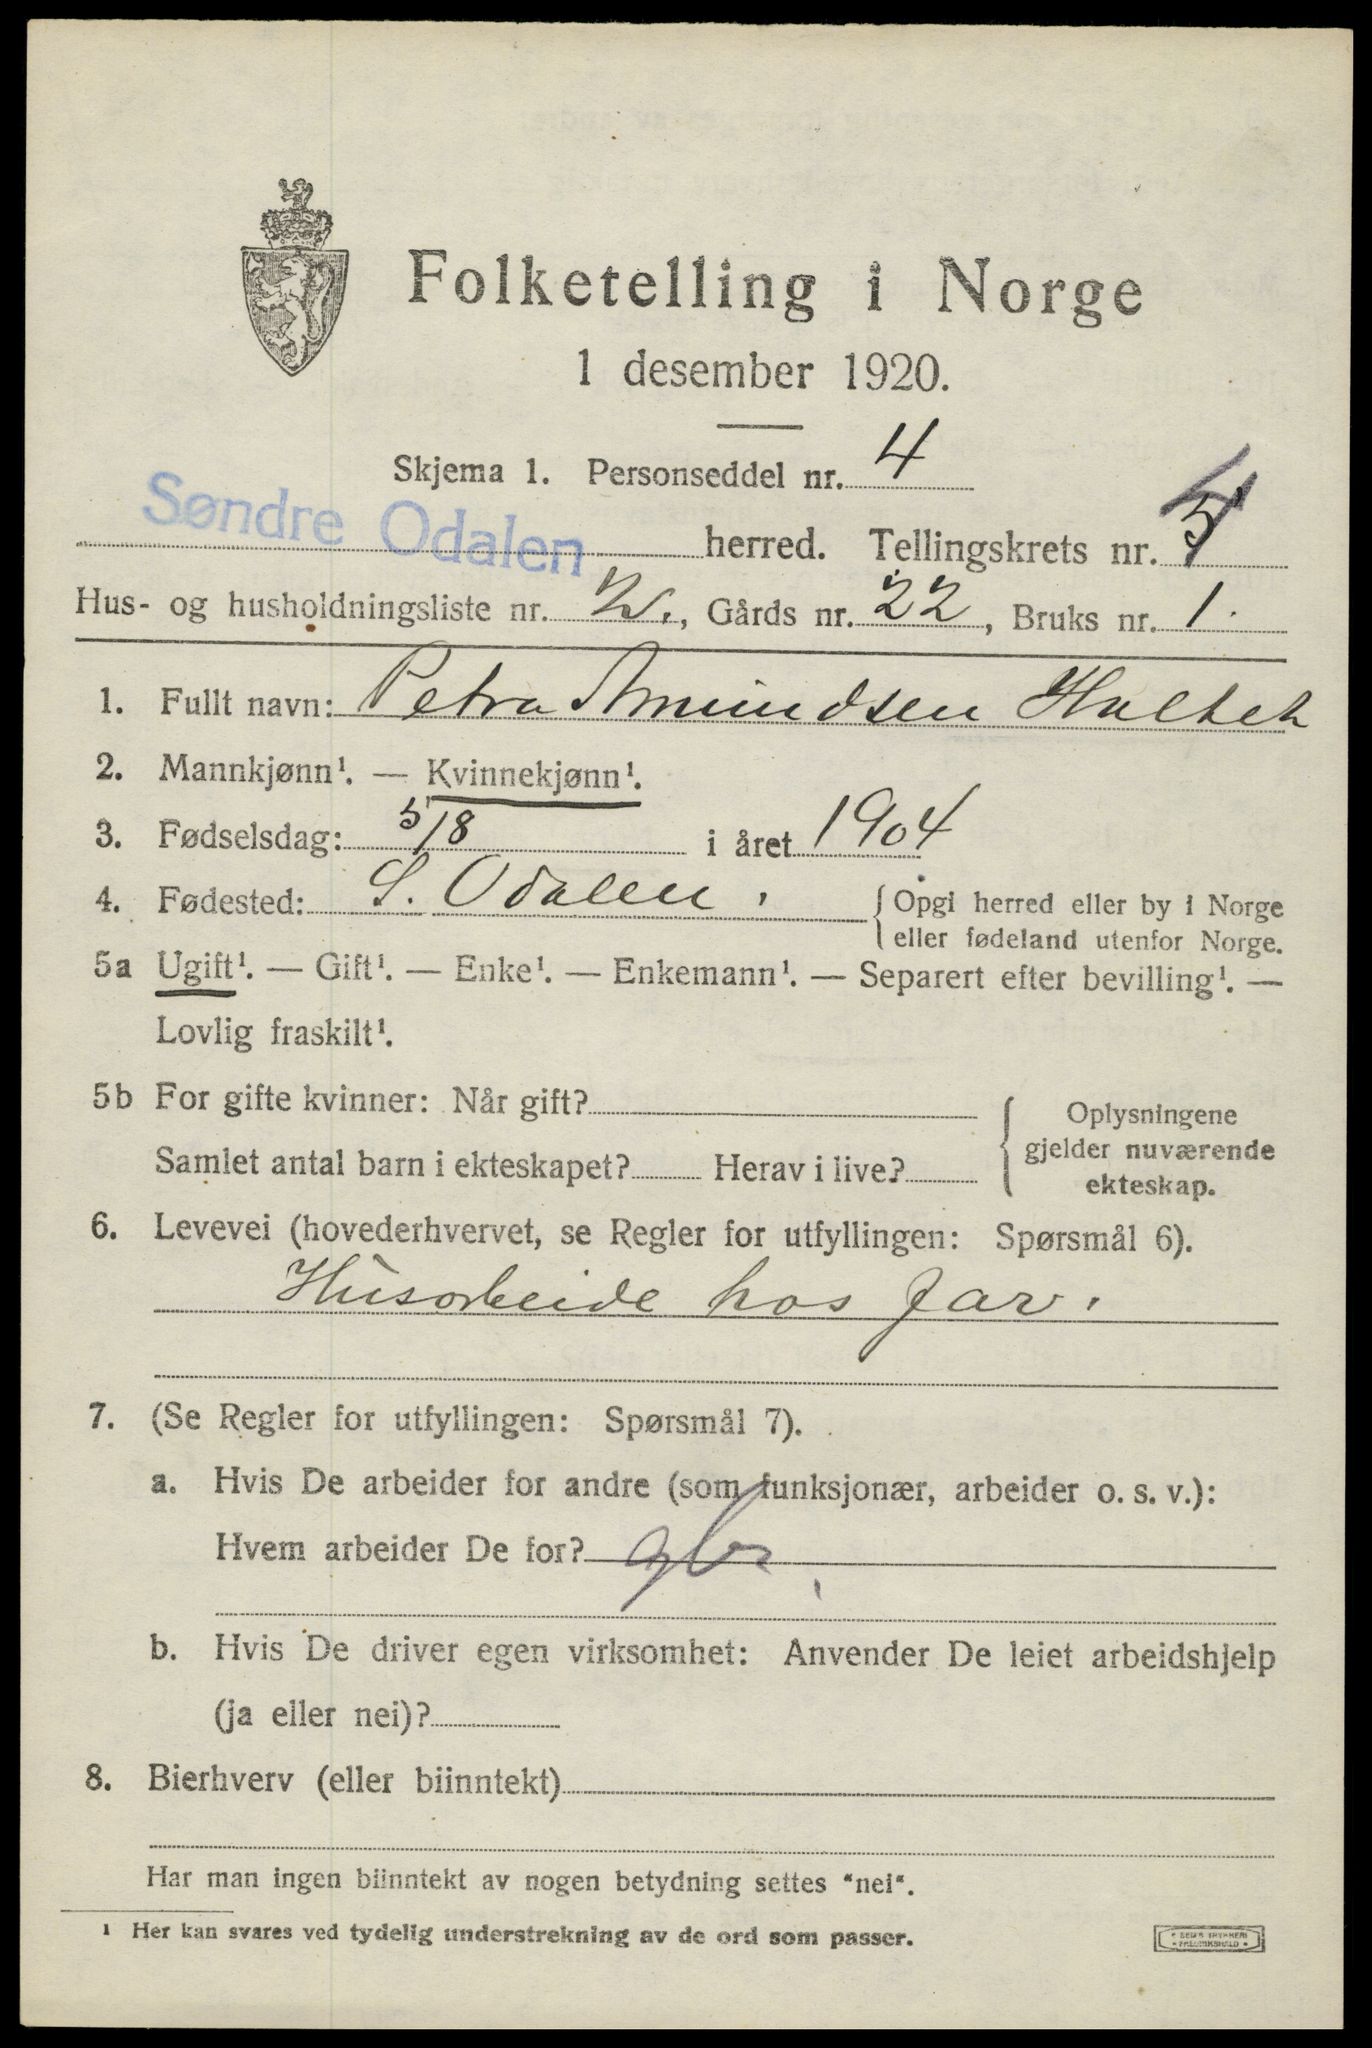 Folketelling i Norge
1 desember 1920.
Skjema 1. Personseddel nr. 4
Søndre Odalen herred. Tellingskrets nr. 4
Hus- og husholdningsliste nr. 2., Gårds nr. 22, Bruks nr. 1.
1. Fullt navn: Petra Amundsen
2. Mannkjønn¹. — Kvinnekjønn¹.
3. Fødselsdag: 5/8 i året 1904
4. Fødested: S. Odalen. {Opgi herred eller by i Norge
eller fødeland utenfor Norge.
5a Ugift¹. — Gift¹. — Enke¹. — Enkemann¹. — Separert efter bevilling¹. —
Lovlig fraskilt¹.
5b For gifte kvinner: Når gift?
Samlet antal barn i ekteskapet? Herav i live?
{Oplysningene
gjelder nuværende
ekteskap.
6. Levevei (hovederhvervet, se Regler for utfyllingen: Spørsmål 6).
Husarbeide hos far.
7. (Se Regler for utfyllingen: Spørsmål 7).
a. Hvis De arbeider for andre (som funksjonær, arbeider o. s. v.):
Hvem arbeider De for? gbr.
b. Hvis De driver egen virksomhet: Anvender De leiet arbeidshjelp
(ja eller nei)?
8. Bierhverv (eller biinntekt)
Har man ingen biinntekt av nogen betydning settes "nei".
¹ Her kan svares ved tydelig understrekning av de ord som passer.